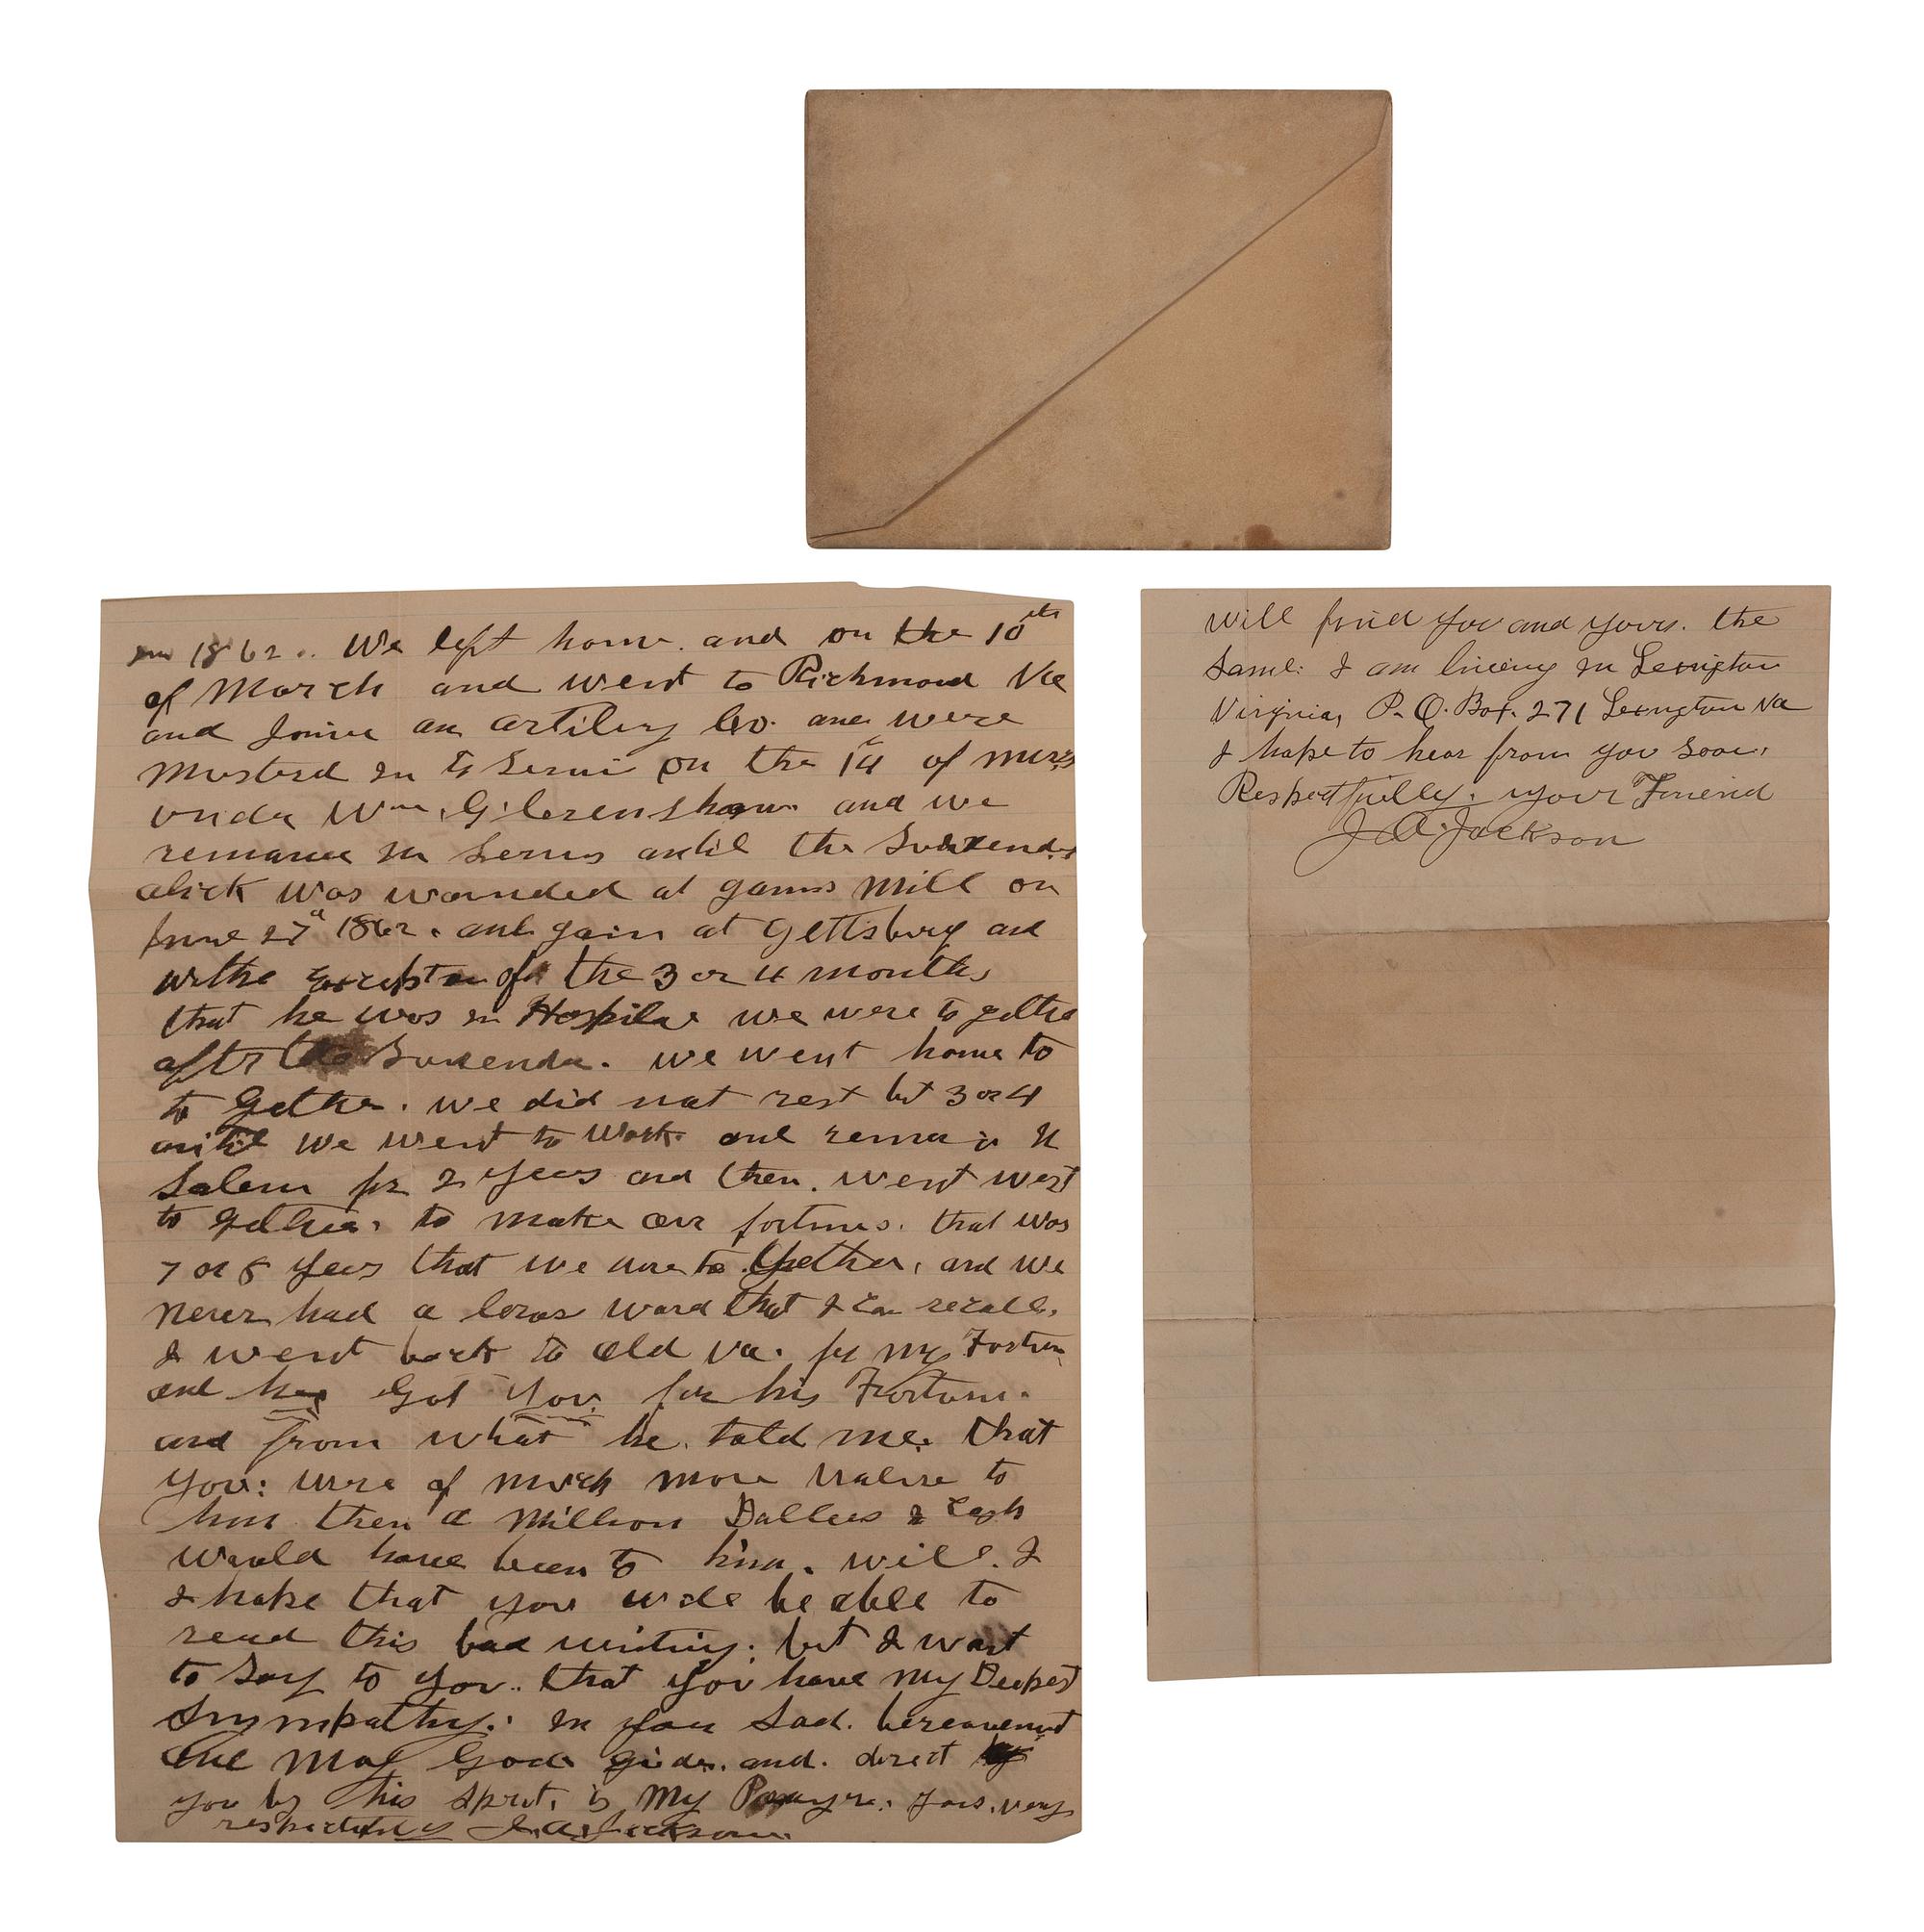 in 1862. We left home. and on the 10th
of March and went to Richmond Va
and Joine an artilery Co. and were
Musterd in to Servi on the 14 of
under Wm. G. and we
remane in Servis until the Surrender
alick was wounded at gains Mill on
June 27" 1862. and gain at Gettsburg and
withe of the 3 or 4 months
that he was in Hospital we were to gether
aftr the Surrender. we went home to
to Gether. we did nat rest but 3 or 4
until we went to Work. and remain in
Salem for 2 years and then. went west
to Gether. to make our fortunes. that was
7 or 8 years that we were to Gether, and we
never had a word that I can recall.
I went back to Old Va. for my Fortun
and he Got You for his Fortune.
and from what he. told me. that
You: were of much more value to
him then a Million Dallers & Cash
would have been to him. will. I
I hope that you wile be able to
read this bad writing: but I want
to say to you.. that you have My Deepest
Sympathy: in your Sad. bereavement
and May God. gide. and. direct
you by his Sprit. is My Prayre. yors. very
respectfuly J. A. Jackson.
will find you and yours. the
Same: I am liveing in Lexington
Virginia, P. O. Box. 271 Lexington Va
I hope to hear from you soon.
Respectfully. your Friend
J A. Jackson